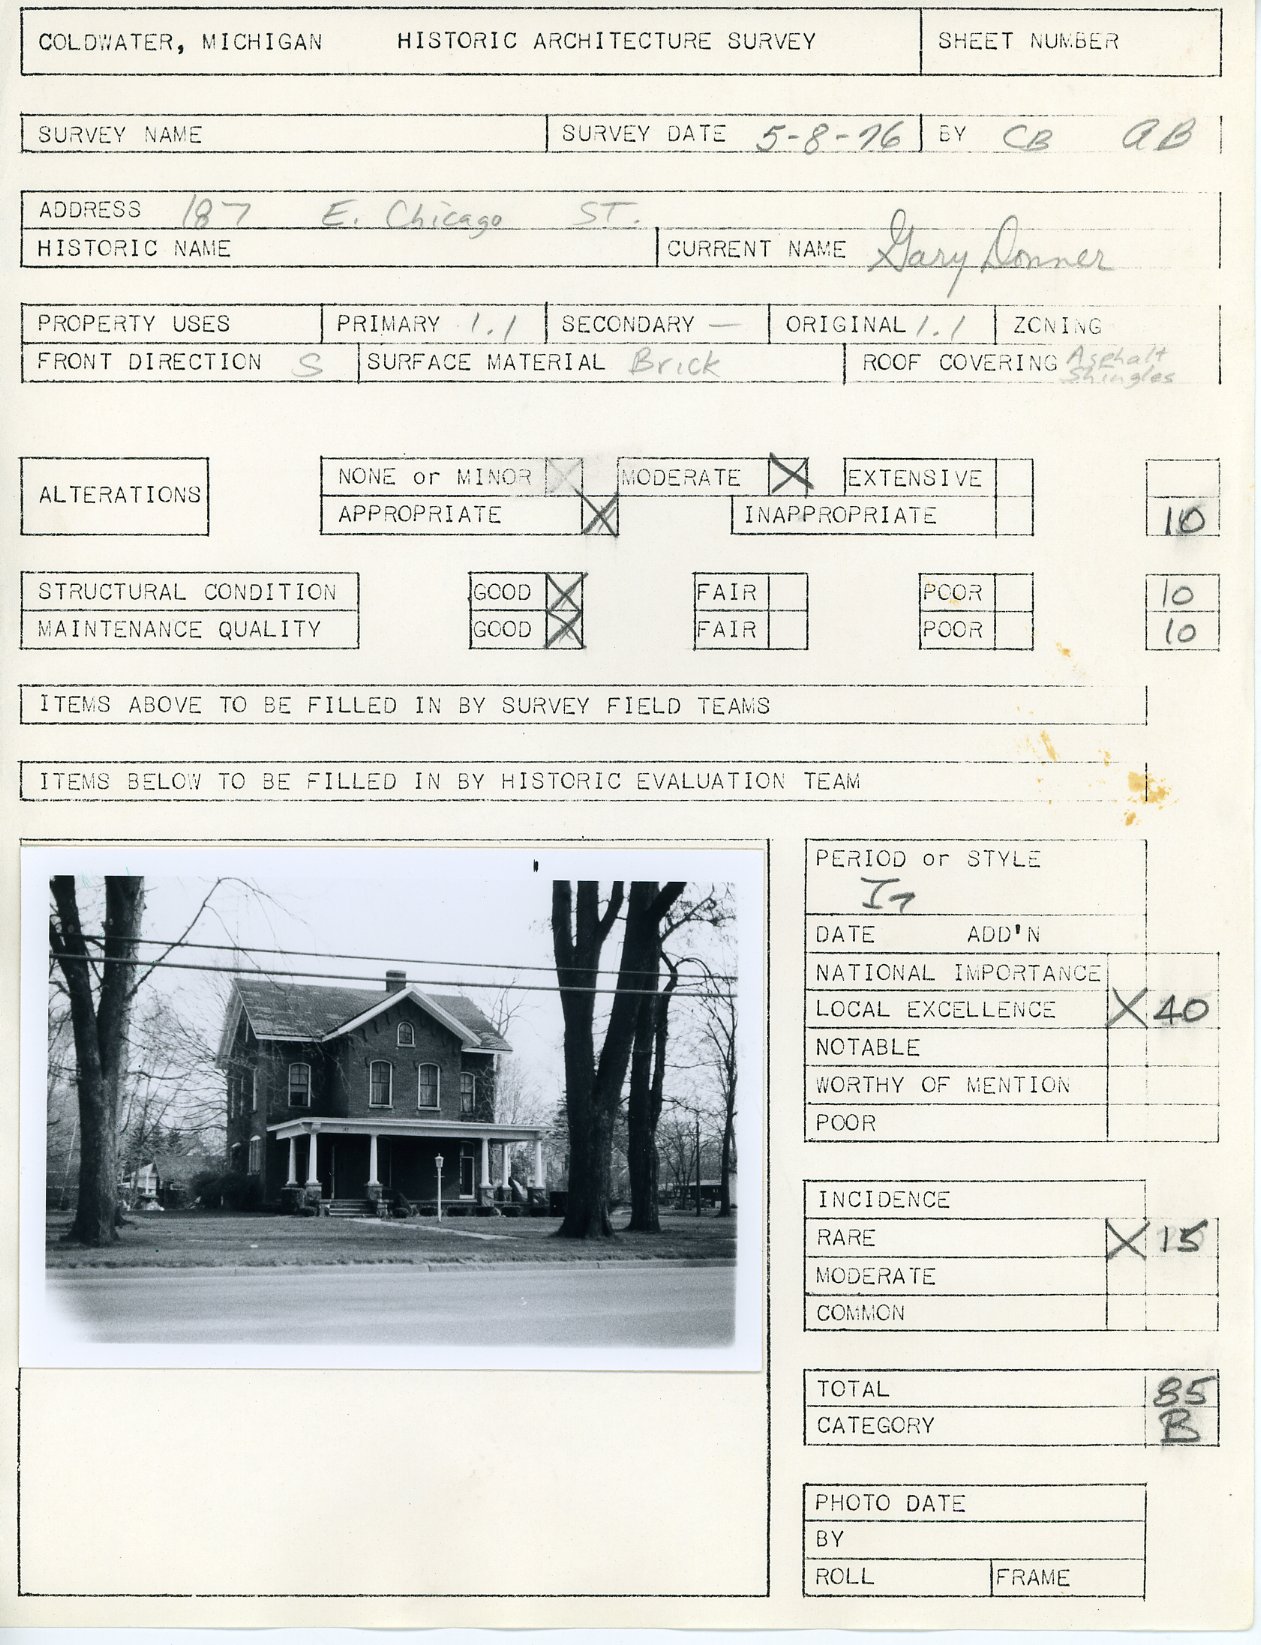 COLDWATER, MICHIGAN HISTORIC ARCHITECTURE SURVEY SHEET NUMBER
SURVEY NAME SURVEY DATE 5-8-76 BY CB AB
ADDRESS 187 E. Chicago ST.
HISTORIC NAME CURRENT NAME Gary Donner
PROPERTY USES PRIMARY 1.1 SECONDARY — ORIGINAL 1.1 ZONING
FRONT DIRECTION S SURFACE MATERIAL Brick ROOF COVERING Asphalt Shingles
ALTERATIONS NONE or MINOR X MODERATE X EXTENSIVE
APPROPRIATE X INAPPROPRIATE 10
STRUCTURAL CONDITION GOOD X FAIR POOR 10
MAINTENANCE QUALITY GOOD X FAIR POOR 10
ITEMS ABOVE TO BE FILLED IN BY SURVEY FIELD TEAMS
ITEMS BELOW TO BE FILLED IN BY HISTORIC EVALUATION TEAM
PERIOD or STYLE
DATE ADD'N
NATIONAL IMPORTANCE
LOCAL EXCELLENCE X 40
NOTABLE
WORTHY OF MENTION
POOR
INCIDENCE
RARE X 15
MODERATE
COMMON
TOTAL 85
CATEGORY B
PHOTO DATE
BY
ROLL FRAME